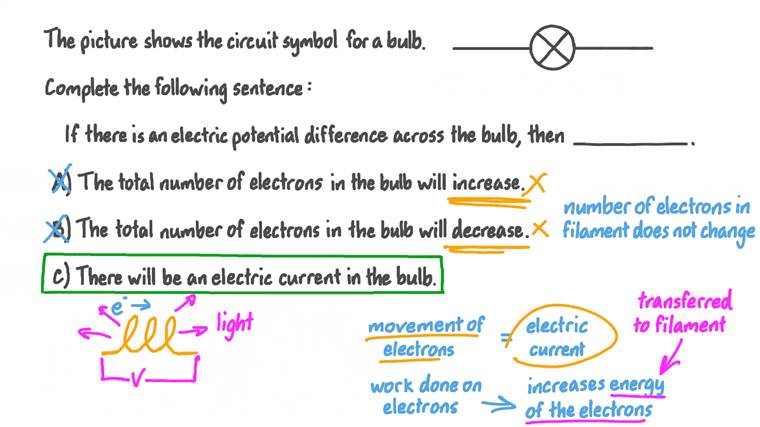 The picture shows the circuit symbol for a bulb.
Complete the following sentence:
If there is an electric potential difference across the bulb, then __________.
A) The total number of electrons in the bulb will increase. X
B) The total number of electrons in the bulb will decrease. X
number of electrons in
filament does not change
C) There will be an electric current in the bulb.
e⁻ →
light
V
movement of
electrons
=
electric
current
transferred
to filament
work done on
electrons
increases energy
of the electrons